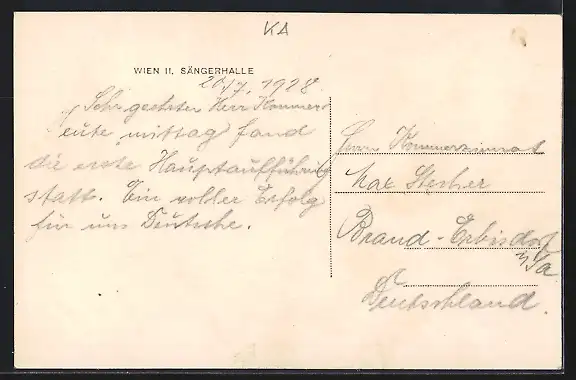 KA
WIEN II, SÄNGERHALLE
20/7. 1928.
Sehr geehrter Herr Kommerz
eute mittag fand
die erste Hauptaufführung
statt. Ein voller Erfolg
für uns Deutsche.
Herrn Kommerzienrat
Max Stecher
Brand-Erbisdorf
i/Sa
Deutschland.